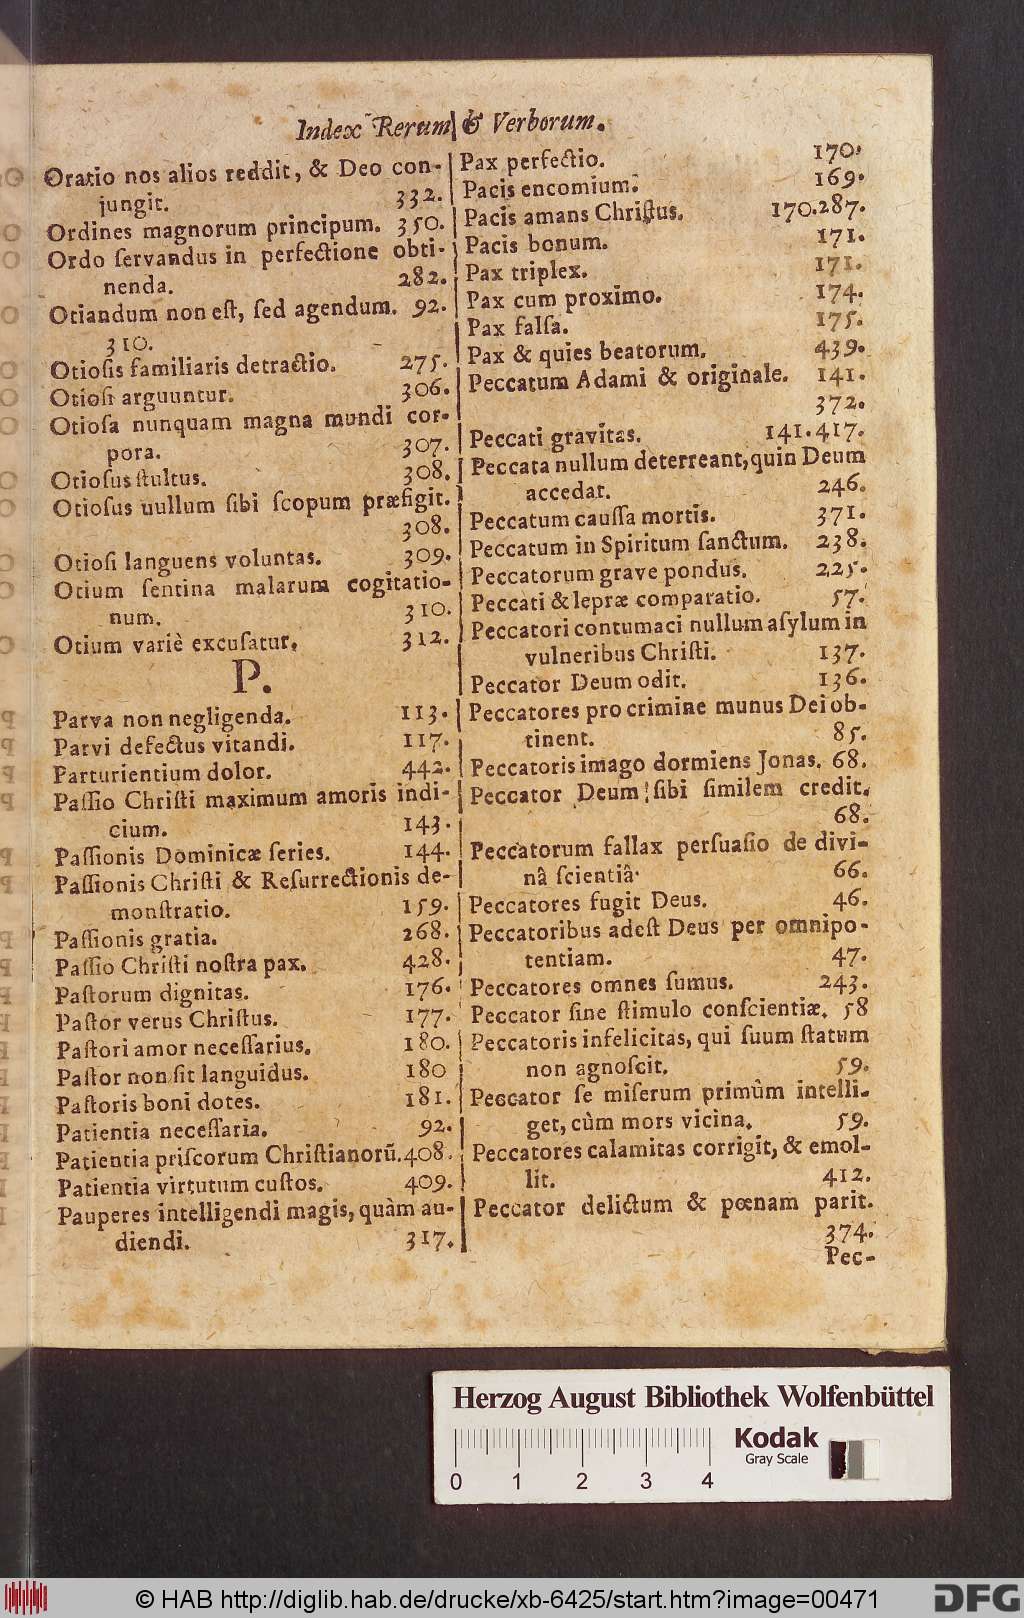 Index Rerum & Verborum.
Oratio nos alios reddit, & Deo con-
jungit. 332.
Ordines magnorum principum. 350.
Ordo ſervandus in perfectione obti-
nenda. 282.
Otiandum non eſt, ſed agendum. 92.
310.
Otioſis familiaris detractio. 275.
Otioſi arguuntur. 306.
Otioſa nunquam magna mundi cor-
pora. 307.
Otioſus ſtultus. 308.
Otioſus uullum ſibi ſcopum præfigit.
308.
Otioſi languens voluntas. 309.
Otium ſentina malarum cogitatio-
num. 310.
Otium variè excuſatur. 312.
P.
Parva non negligenda. 113.
Parvi defectus vitandi. 117.
Parturientium dolor. 442.
Paſſio Chriſti maximum amoris indi-
cium. 143.
Paſſionis Dominicæ ſeries. 144.
Paſſionis Chriſti & Reſurrectionis de-
monſtratio. 159.
Paſſionis gratia. 268.
Paſſio Chriſti noſtra pax. 428.
Paſtorum dignitas. 176.
Paſtor verus Chriſtus. 177.
Paſtori amor neceſſarius. 180.
Paſtor non ſit languidus. 180
Paſtoris boni dotes. 181.
Patientia neceſſaria. 92.
Patientia priſcorum Chriſtianorū. 408.
Patientia virtutum cuſtos. 409.
Pauperes intelligendi magis, quàm au-
diendi. 317.
Pax perfectio. 170.
Pacis encomium. 169.
Pacis amans Chriſtus. 170.287.
Pacis bonum. 171.
Pax triplex. 171.
Pax cum proximo. 174.
Pax falſa. 175.
Pax & quies beatorum. 439.
Peccatum Adami & originale. 141.
372.
Peccati gravitas. 141.417.
Peccata nullum deterreant, quin Deum
accedat. 246.
Peccatum cauſſa mortis. 371.
Peccatum in Spiritum ſanctum. 238.
Peccatorum grave pondus. 225.
Peccati & lepræ comparatio. 57.
Peccatori contumaci nullum aſylum in
vulneribus Chriſti. 137.
Peccator Deum odit. 136.
Peccatores pro crimine munus Dei ob-
tinent. 85.
Peccatoris imago dormiens Jonas. 68.
Peccator Deum ſibi ſimilem credit.
68.
Peccatorum fallax perſuaſio de divi-
nâ ſcientiâ. 66.
Peccatores fugit Deus. 46.
Peccatoribus adeſt Deus per omnipo-
tentiam. 47.
Peccatores omnes ſumus. 243.
Peccator ſine ſtimulo conſcientiæ. 58
Peccatoris infelicitas, qui ſuum ſtatum
non agnoſcit. 59.
Peccator ſe miſerum primùm intelli-
get, cùm mors vicina. 59.
Peccatores calamitas corrigit, & emol-
lit. 412.
Peccator delictum & pœnam parit.
374.
Pec-
Herzog August Bibliothek Wolfenbüttel
Kodak
Gray Scale
0 1 2 3 4
© HAB http://diglib.hab.de/drucke/xb-6425/start.htm?image=00471
DFG